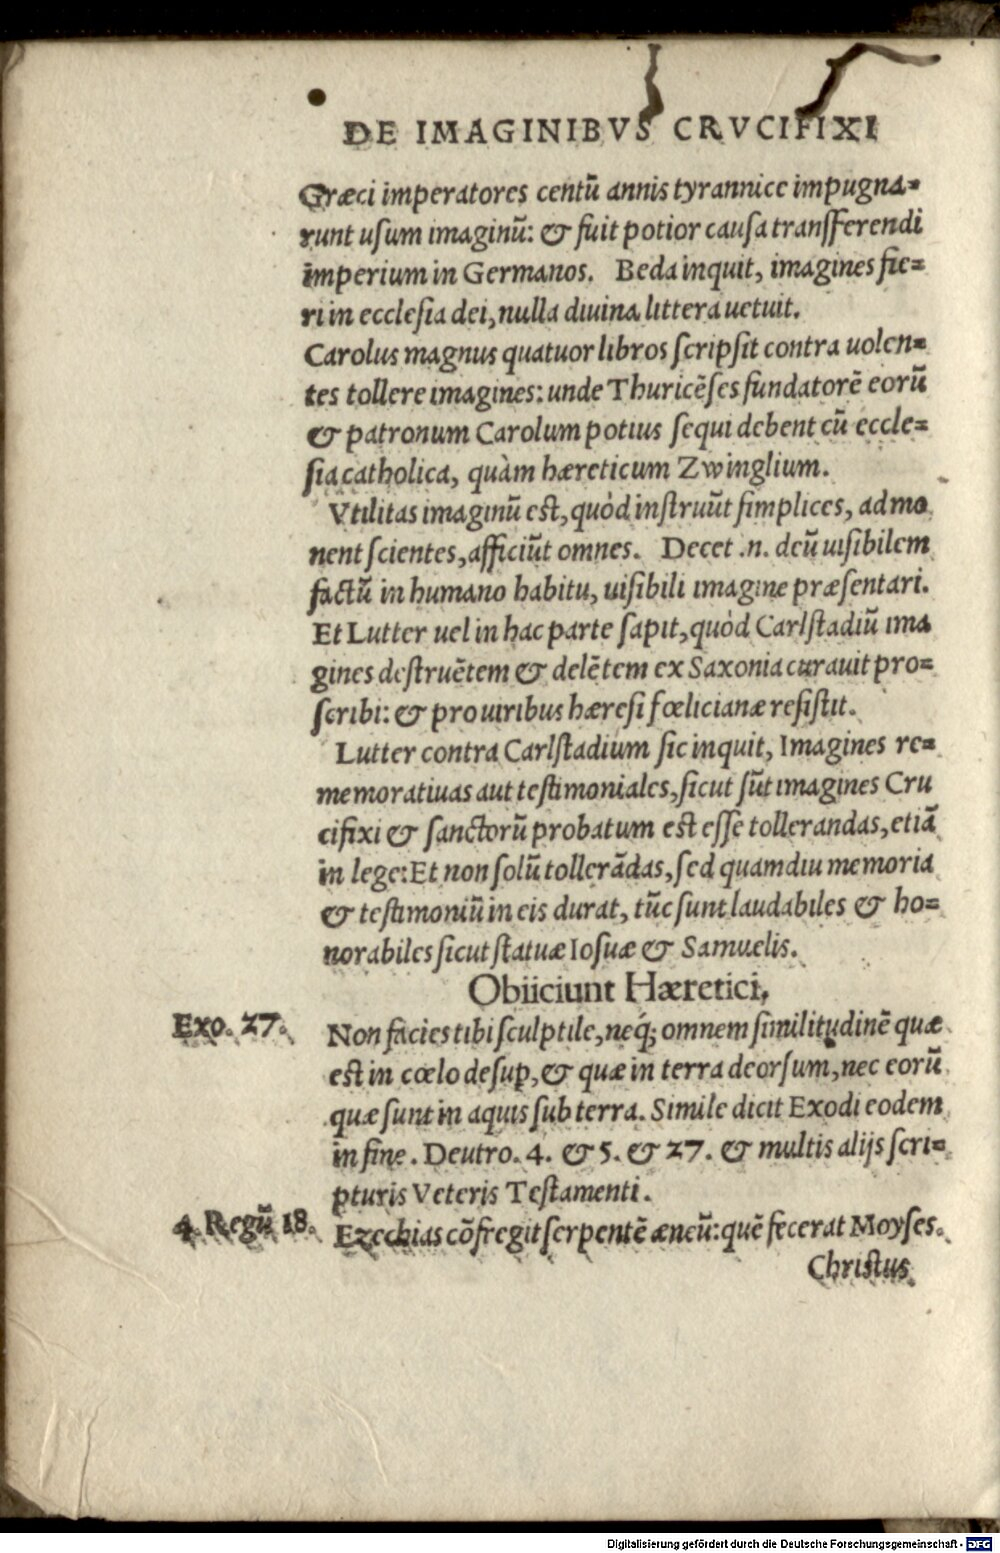 DE IMAGINIBVS CRVCIFIXI
Græci imperatores centũ annis tyrannice impugna=
runt uſum imaginũ: & fuit potior cauſa tranſferendi
imperium in Germanos. Beda inquit, imagines fie=
ri in eccleſia dei, nulla diuina littera uetuit.
Carolus magnus quatuor libros ſcripſit contra uolen=
tes tollere imagines: unde Thuricẽſes fundatorẽ eorũ
& patronum Carolum potius ſequi debent cũ eccle=
ſia catholica, quàm hæreticum Zwinglium.
Vtilitas imaginũ eſt, quòd inſtruũt ſimplices, admo
nent ſcientes, afficiũt omnes. Decet .n. deũ uiſibilem
factũ in humano habitu, uiſibili imagine præſentari.
Et Lutter uel in hac parte ſapit, quòd Carlſtadiũ ima
gines deſtruẽtem & delẽtem ex Saxonia curauit pro=
ſcribi: & pro uiribus hæreſi fœlicianæ reſiſtit.
Lutter contra Carlſtadium ſic inquit, Imagines re=
memoratiuas aut teſtimoniales, ſicut ſũt imagines Cru
cifixi & ſanctorũ probatum eſt eſſe tollerandas, etiã
in lege: Et non ſolũ tollerãdas, ſed quamdiu memoria
& teſtimoniũ in eis durat, tũc ſunt laudabiles & ho=
norabiles ſicut ſtatuæ Ioſuæ & Samuelis.
Obiiciunt Hæretici,
Exo. 27.
Non facies tibi ſculptile, neq́; omnem ſimilitudinẽ quæ
eſt in cœlo deſuꝑ, & quæ in terra deorſum, nec eorũ
quæ ſunt in aquis ſub terra. Simile dicit Exodi eodem
in fine. Deutro. 4. & 5. & 27. & multis alijs ſcri=
pturis Veteris Teſtamenti.
4. Regũ 18.
Ezechias cõfregit ſerpentẽ æneũ: quẽ fecerat Moyſes.
Chriſtus
Digitalisierung gefördert durch die Deutsche Forschungsgemeinschaft - DFG